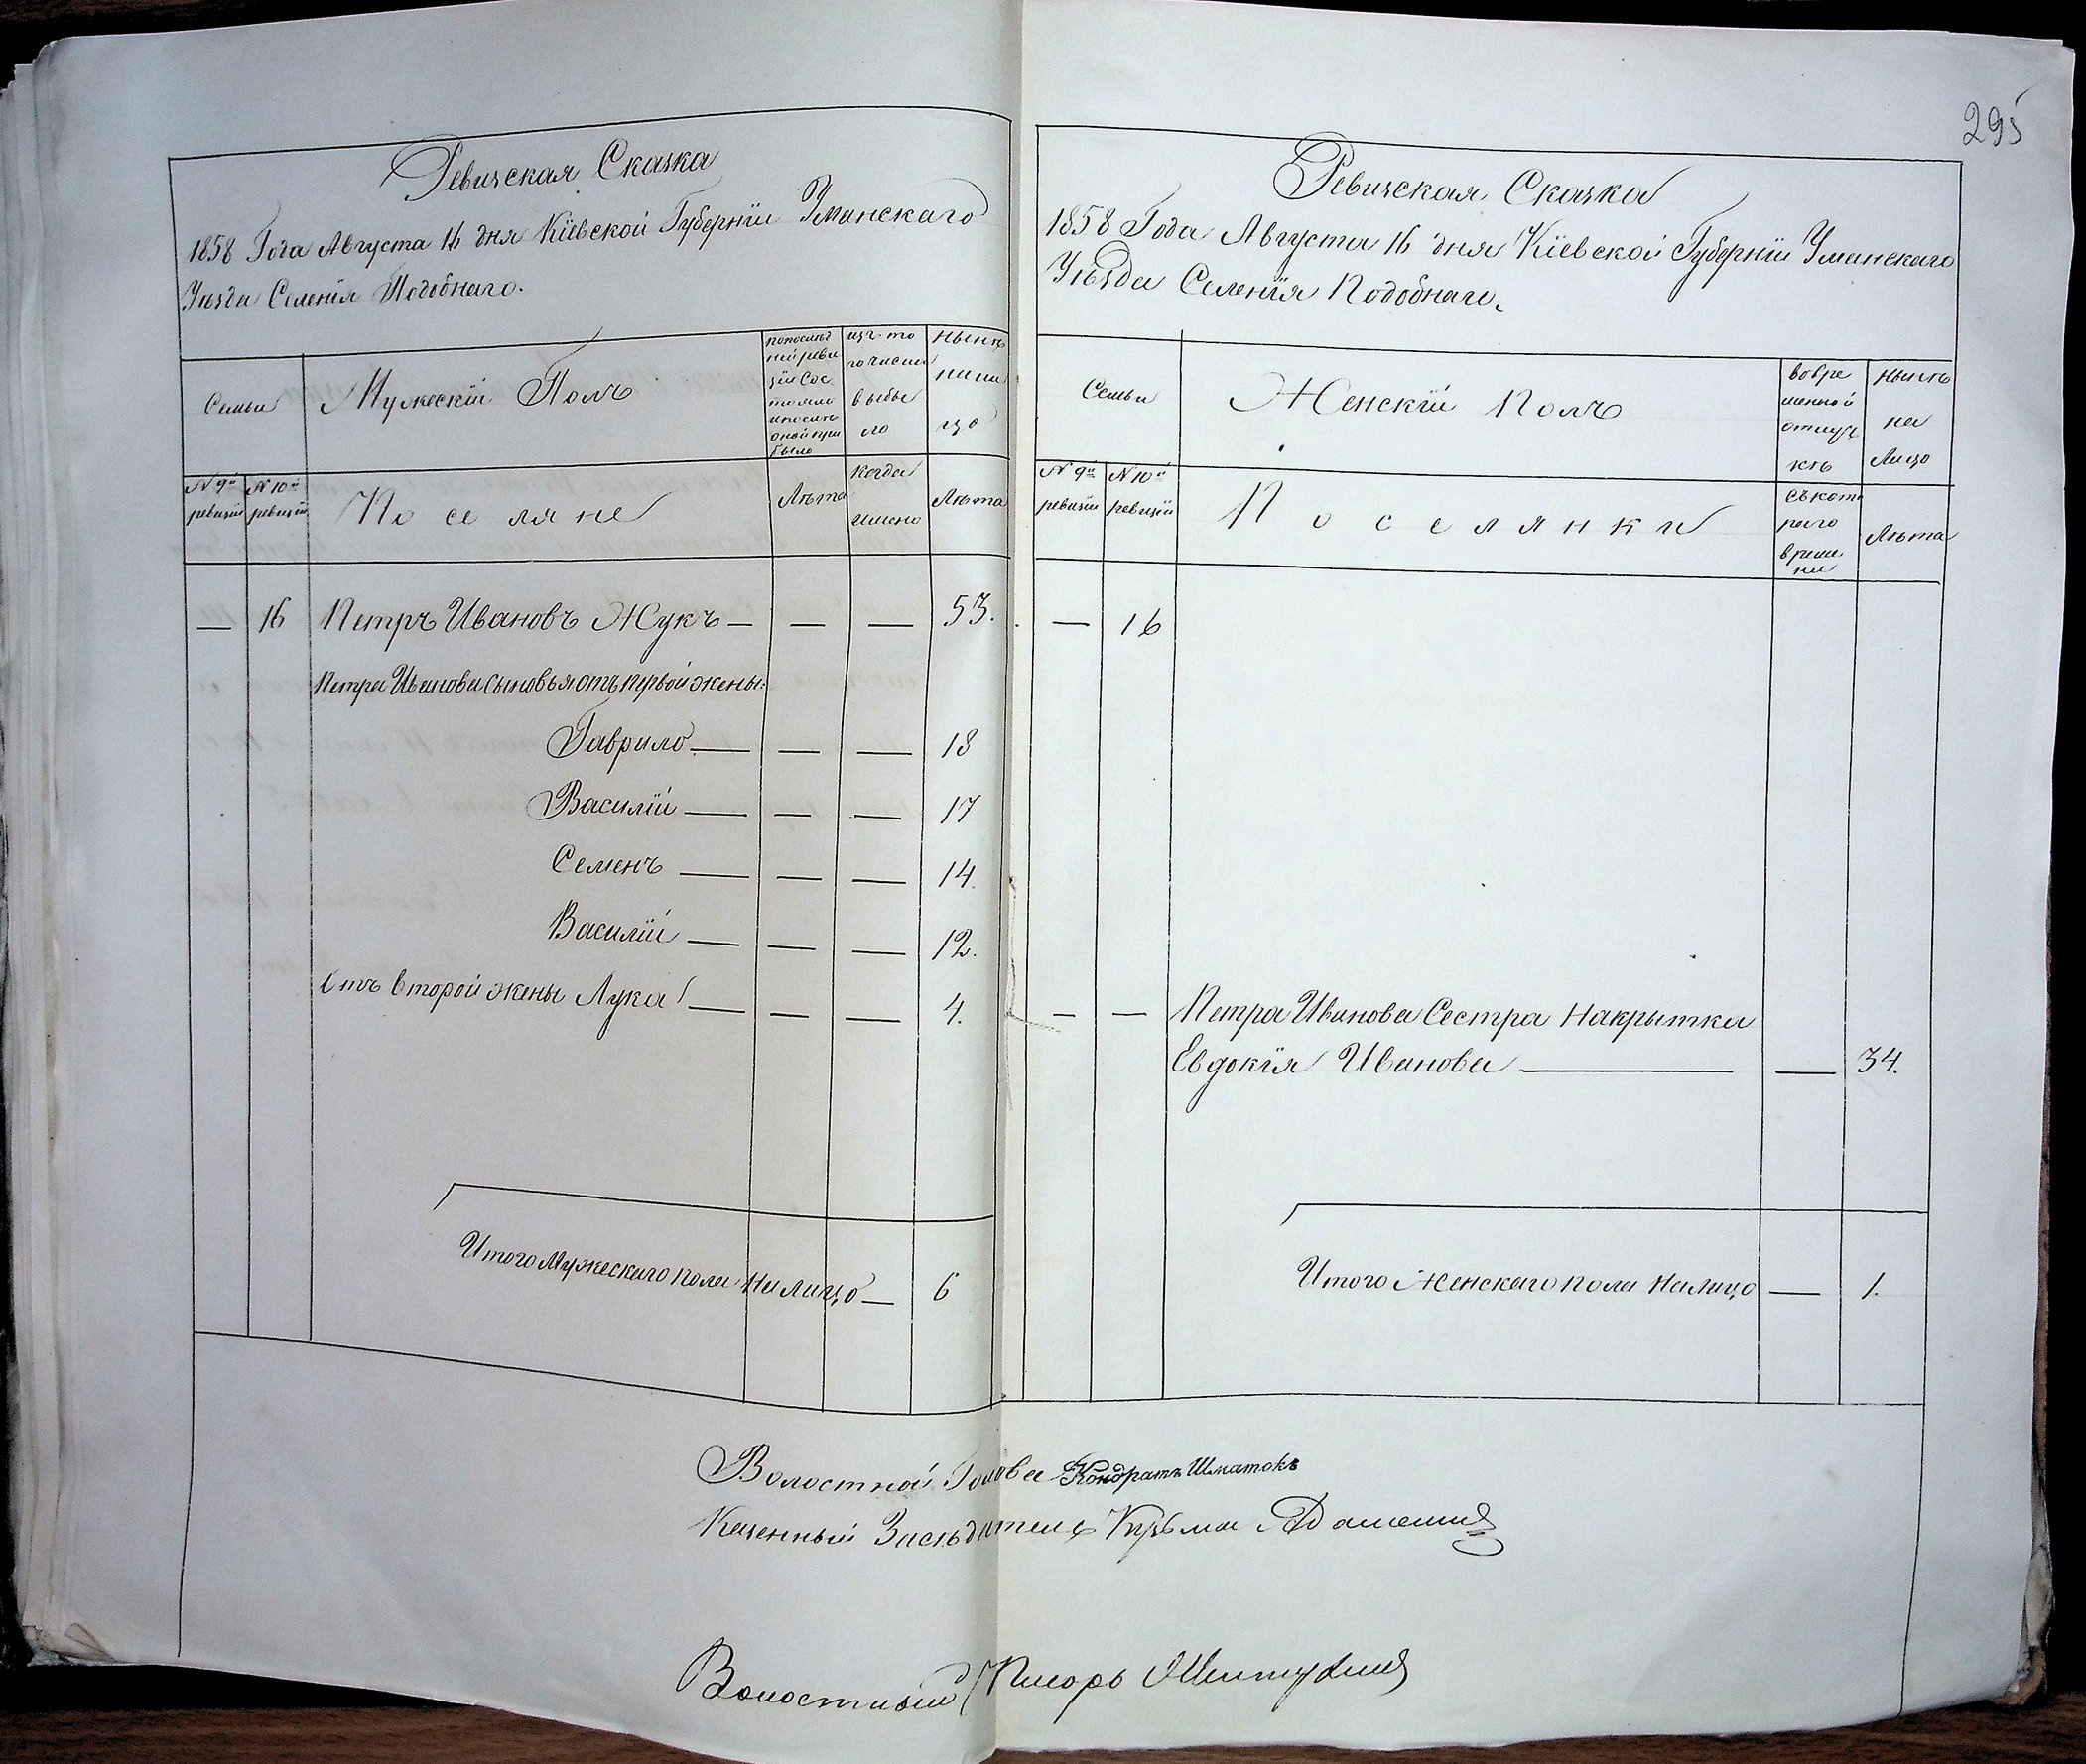 295
Ревизская Сказка
1858 Года Августа 16 дня Кіевской Губерніи Уманскаго
Уѣзда Селенія Подобнаго.
Семьи
Мужескій Полъ
по послѣд
ней реви
зіи сос
тояло
и послѣ
оной при
было
изъ то
го числа
выбы
ло
нынѣ
на ли
цо
№ 9й
ревизіи
№ 10й
ревизіи
Поселяне
Лѣта
когда
имено
Лѣта
— 16 Петръ Ивановъ Жукъ — — — 53.
Петра Иванова сыновья отъ первой жены:
Гаврило — — — 18
Василій — — — 17
Семенъ — — — 14.
Василій — — — 12.
Отъ второй жены Лука — — — 4.
Итого Мужескаго пола на лицо — 6
Ревизская Сказка
1858 Года Августа 16 дня Кіевской Губерніи Уманскаго
Уѣзда Селенія Подобнаго.
Семьи
Женскій Полъ
во вре
менной
отлуч
кѣ
нынѣ
на
лицо
№ 9й
ревизіи
№ 10й
ревизіи
Поселянки
съ кото
раго
време
ни
Лѣта
— 16
— — Петра Иванова Сестра Накрытка
Евдокія Иванова — — 34.
Итого Женскаго пола на лицо — 1.
Волостной Голова Кондратъ Шматокъ
Казенный Засѣдатель Кузьма
Волостный Писарь